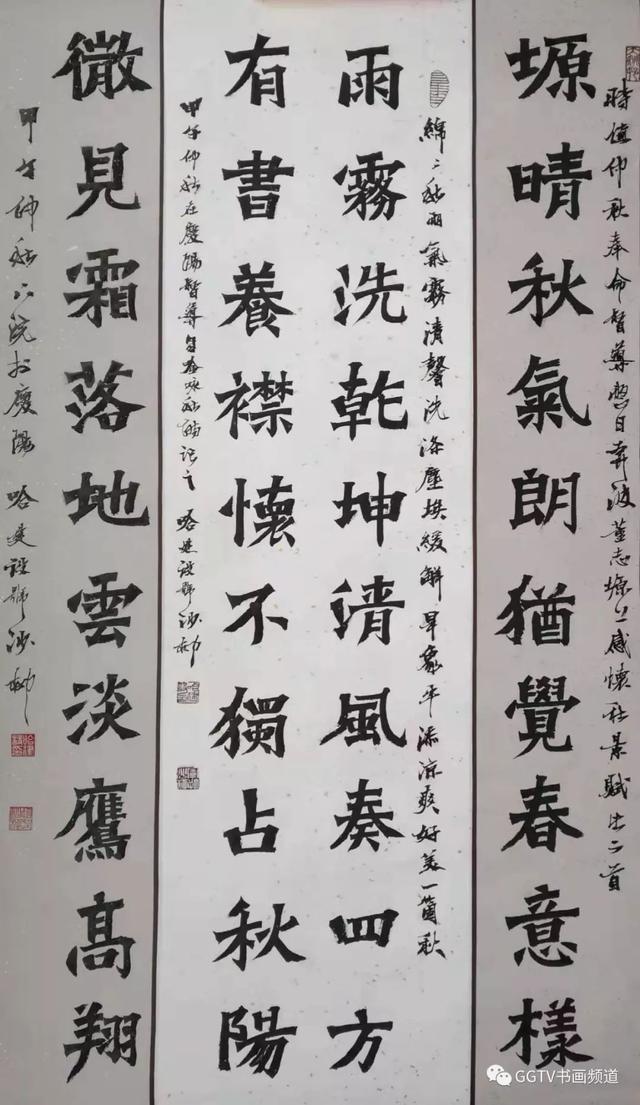 時值仲秋奉命督導整日奔波董志塬上感懷秋景賦此二首
塬晴秋氣朗猶覺春意樣
綿〻秋雨氣霧清馨洗滌塵埃緩解旱象平添涼爽好美一箇秋
雨霧洗乾坤清風奏四方
有書養襟懷不獨占秋陽
甲午仲秋在慶陽督導 哈建設號沙柳
微見霜落地雲淡鷹髙翔
甲午仲秋下浣於慶陽 哈建設號沙柳
GGTV书画频道